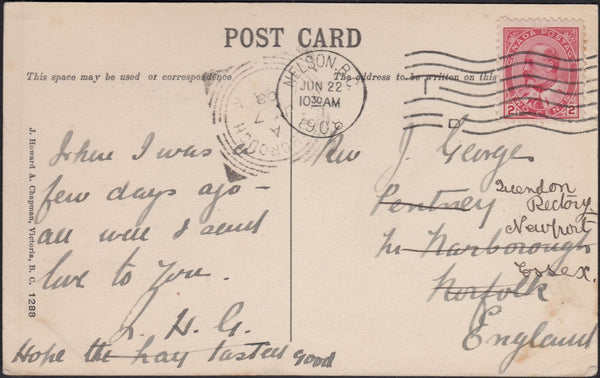 POST CARD
This space may be used for correspondence.
The address to be written on this
CANADA POSTAGE
2 TWO CENTS 2
NELSON, B.C.
JUN 22
10 30 AM
Where I was a
few days ago –
all well I send
love to you.
L. H. G.
Hope the hay tasted good
Rev J. George
Pentney
Nr Narborough
Norfolk
England
Quendon
Rectory
Newport
Essex.
J. Howard A. Chapman, Victoria, B. C. 1288